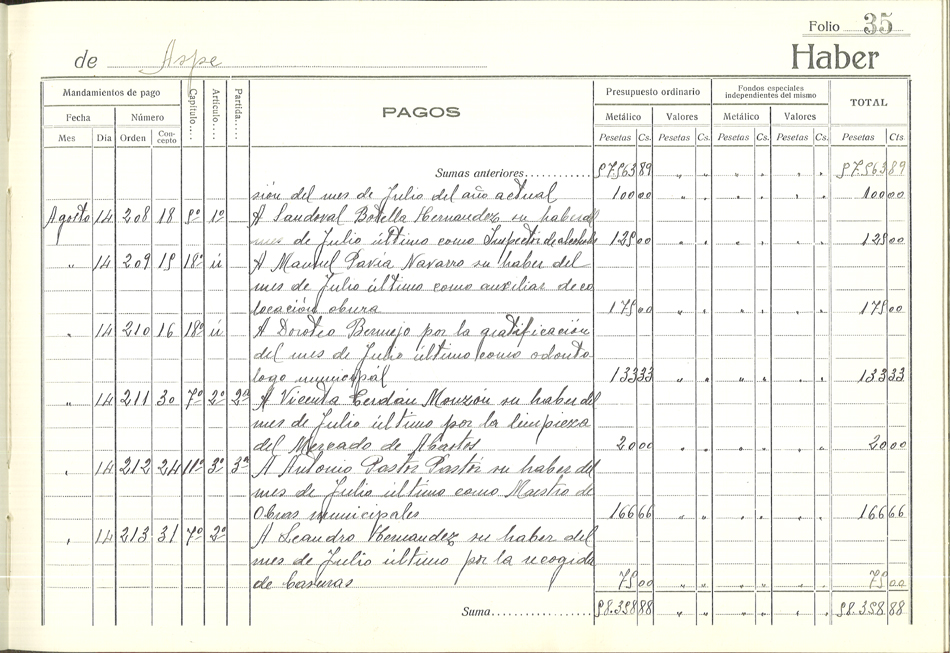 Folio 35
de Aspe
Haber
Mandamientos de pago Capítulo.... Artículo.... Partida..... PAGOS Presupuesto ordinario Fondos especiales independientes del mismo TOTAL
Fecha Número Metálico Valores Metálico Valores
Mes Día Orden Concepto Pesetas Cs. Pesetas Cs. Pesetas Cs. Pesetas Cs. Pesetas Cts.
Sumas anteriores............ 97.563 89 " " " " " " 97.563 89
sión del mes de Julio del año actual 100 00 " " " " " " 100 00
Agosto 14 208 18 9º 1º A Sandoval Botella Hernandez su haber del
mes de Julio último como Inspector de alcoholes 125 00 " " " " " " 125 00
" 14 209 15 18º ú A Manuel Pavía Navarro su haber del
mes de Julio último como auxiliar de co
locación obrera 175 00 " " " " " " 175 00
" 14 210 16 18º ú A Doroteo Bermejo por la gratificación
del mes de Julio último como odonto
logo municipal 133 33 " " " " " " 133 33
" 14 211 30 7º 2º 2ª A Vicenta Cerdán Monzón su haber del
mes de Julio último por la limpieza
del Mercado de Abastos 20 00 " " " " " " 20 00
" 14 212 24 11º 3º 3ª A Antonio Pastor Pastor su haber del
mes de Julio último como Maestro de
Obras municipales 166 66 " " " " " " 166 66
" 14 213 31 7º 2º A Leandro Hernandez su haber del
mes de Julio último por la recogida
de basuras 75 00 " " " " " " 75 00
Suma..................... 98.358 88 " " " " " " 98.358 88